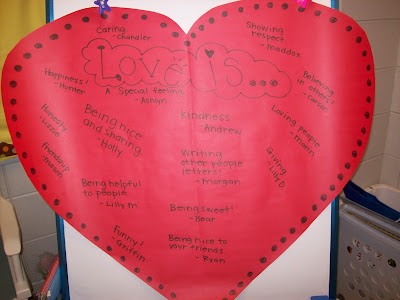 Caring
-Chandler
Showing
respect
-maddox
Love is...
A Special feeling
-Ashlyn
Happiness!
-Hunter
Believing
in others!
-Carson
Honesty
-Lizzie
Being nice
and sharing.
-Holly
Kindness
-Andrew
Loving people
Friendship
Writing
other people
letters!
-morgan
Giving
-Lilly D.
Being helpful
to people
-Lilly M.
Being sweet!
-Bear
Funny!
-Griffin
Being nice to
your friends.
-Ryan